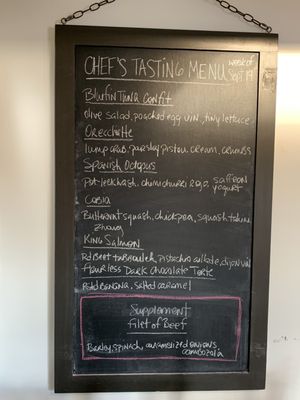 CHEF'S TASTING MENU week of Sept 19
Bluefin Tuna Confit
olive salad, poached egg vin, tiny lettuce
Orecchiette
lump crab, parsley pistou, cream, crumbs
Spanish Octopus
pot-leek hash, chimichurri saffron
yogurt
Cobia
Butternut squash, chickpea, squash tahini
zhoug
King Salmon
Rd Beet tabbouleh, pistachio dijon vin
flourless Dark Chocolate Torte
banana, salted caramel
Supplement
Filet of Beef
Barley, spinach, caramelized onions,
cambozola